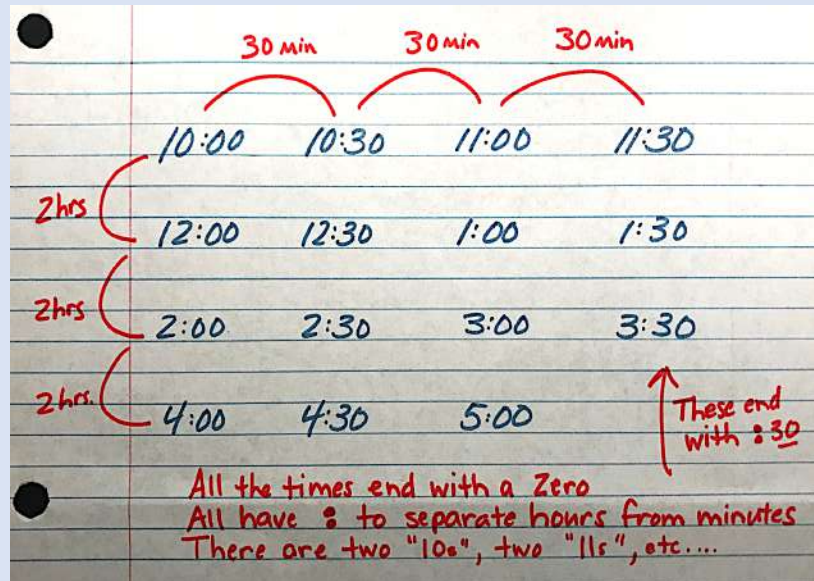 30 Min 30 Min 30 Min
10:00 10:30 11:00 11:30
2hrs
12:00 12:30 1:00 1:30
2hrs
2:00 2:30 3:00 3:30
2hrs.
4:00 4:30 5:00
These end
with :30
All the times end with a Zero
All have : to separate hours from minutes
There are two "10s", two "11s", etc....